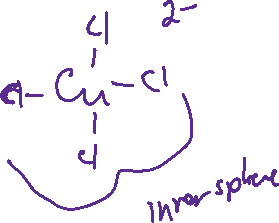 Cl 2-
Cl-Cu-Cl
Cl
inner sphere